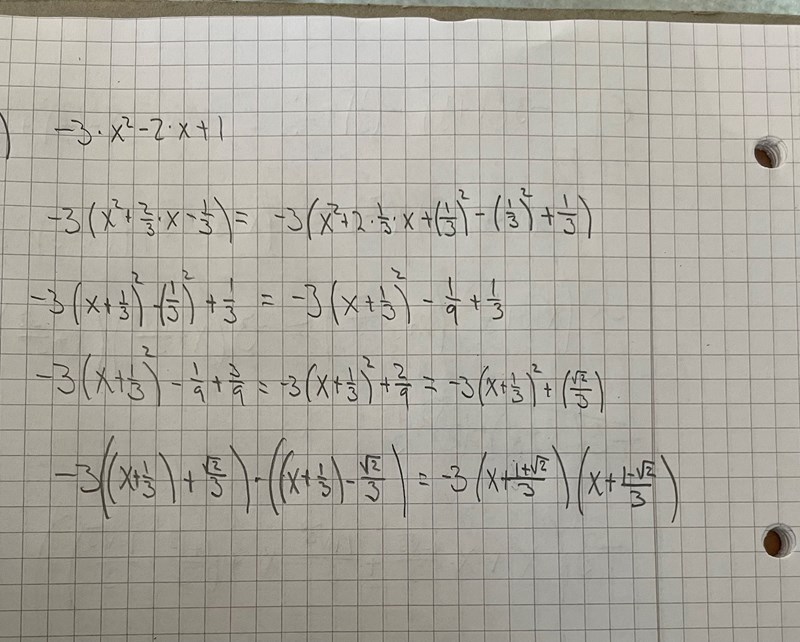 ) -3·x²-2·x+1
-3(x²+2/3·x-1/3)= -3(x²+2·1/3·x+(1/3)²-(1/3)²+1/3)
-3(x+1/3)²-(1/3)²+1/3 = -3(x+1/3)²-1/9+1/3
-3(x+1/3)²-1/9+3/9=-3(x+1/3)²+2/9=-3(x+1/3)²+(√2/3)
-3((x+1/3)+√2/3)·((x+1/3)-√2/3)=-3(x+(1+√2)/3)(x+(1-√2)/3)